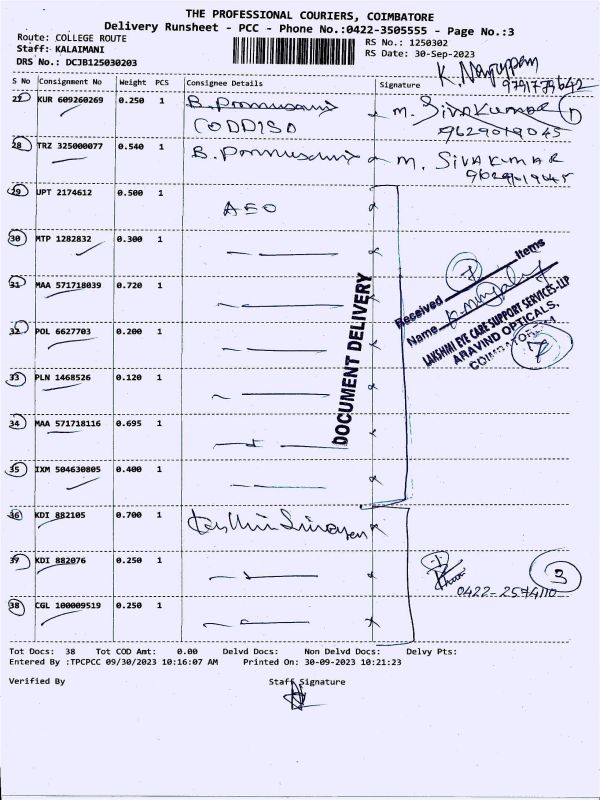 THE PROFESSIONAL COURIERS, COIMBATORE
Delivery Runsheet - PCC - Phone No.:0422-3505555 - Page No.:3
Route: COLLEGE ROUTE
Staff: KALAIMANI
DRS No.: DCJB125030203
RS No.: 1250302
RS Date: 30-Sep-2023
9791779642
S No Consignment No Weight PCS Consignee Details Signature
27 KUR 609260269 0.250 1 M. SIVAKUMAR
9629019045
28 TRZ 325000077 0.540 1 M. SIVAKUMAR
29 UPT 2174612 0.500 1 AEO
30 MTP 1282832 0.300 1
31 MAA 571718039 0.720 1
32 POL 6627703 0.200 1
33 PLN 1468526 0.120 1
34 MAA 571718116 0.695 1
35 IXM 504630805 0.400 1
DOCUMENT DELIVERY
Received 7 Items
Name
LAKSHMI EYE CARE SUPPORT SERVICES-LLP
ARAVIND OPTICALS,
7
36 KDI 882105 0.700 1
37 KDI 882076 0.250 1
3
38 CGL 100009519 0.250 1
Tot Docs: 38 Tot COD Amt: 0.00 Delvd Docs: Non Delvd Docs: Delvy Pts:
Entered By :TPCPCC 09/30/2023 10:16:07 AM Printed On: 30-09-2023 10:21:23
Verified By Staff Signature